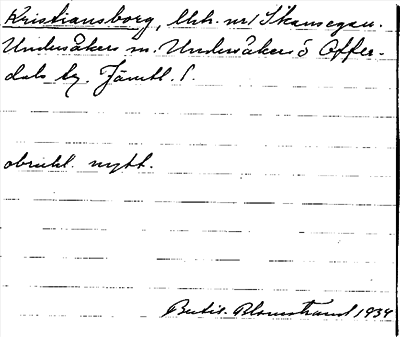 Kristiansborg, lht. nr 1 Skansegan.
Undersåkers sn. Undersåkers o Offer-
dals tg. Jämtl. l.
obrukl. nytt.
Bertil Blomstrand 1934